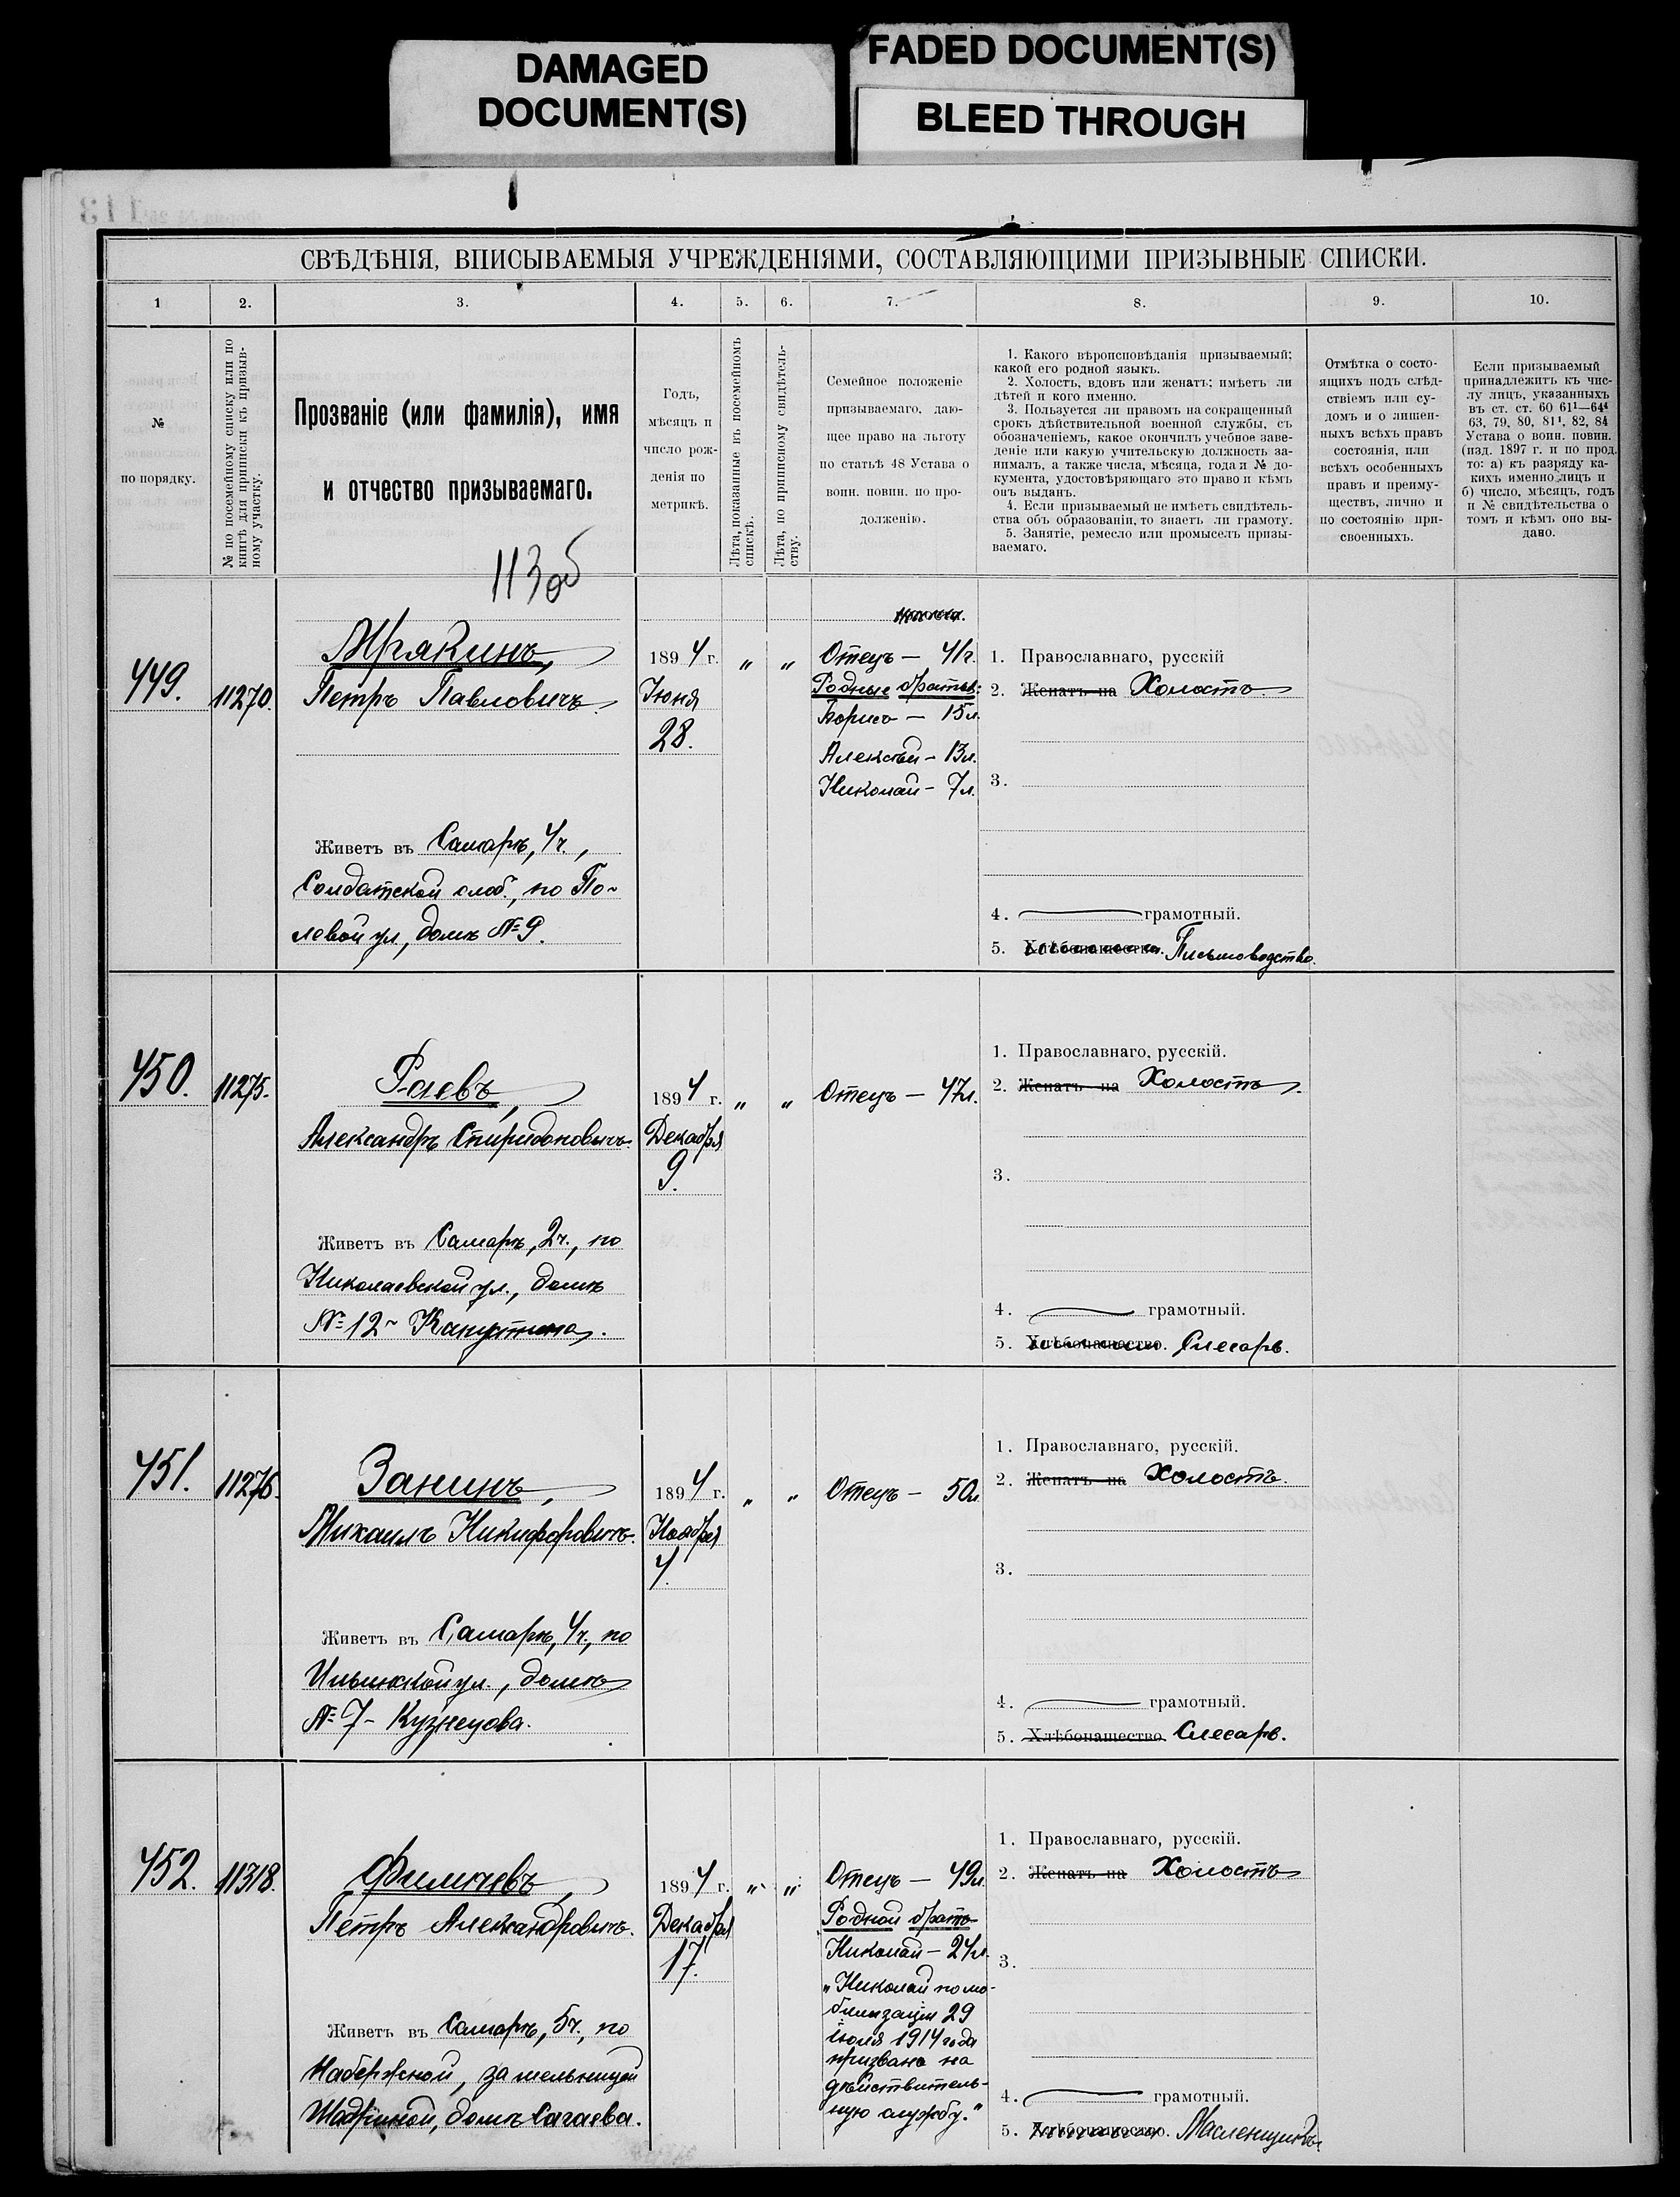 DAMAGED
DOCUMENT(S)
FADED DOCUMENT(S)
BLEED THROUGH
СВѢДѢНІЯ, ВПИСЫВАЕМЫЯ УЧРЕЖДЕНІЯМИ, СОСТАВЛЯЮЩИМИ ПРИЗЫВНЫЕ СПИСКИ.
1
2.
3.
4.
5.
6.
7.
8.
9.
10.
№
по порядку.
№ по посемейному списку или по
книгѣ для приписки къ призыв-
ному участку.
Прозваніе (или фамилія), имя
и отчество призываемаго.
Годъ,
мѣсяцъ и
число рож-
денія по
метрикѣ.
Лѣта, показанные въ посемейномъ
спискѣ.
Лѣта, по приписному свидѣтель-
ству.
Семейное положеніе
призываемаго, даю-
щее право на льготу
по статьѣ 48 Устава о
воин. повин. по про-
долженію.
1. Какого вѣроисповѣданія призываемый;
какой его родной языкъ.
2. Холостъ, вдовъ или женатъ; имѣетъ ли
дѣтей и кого именно.
3. Пользуется ли правомъ на сокращенный
срокъ дѣйствительной военной службы, съ
обозначеніемъ, какое окончилъ учебное заве-
деніе или какую учительскую должность за-
нималъ, а также числа, мѣсяца, года и № до-
кумента, удостовѣряющаго это право и кѣмъ
онъ выданъ.
4. Если призываемый не имѣетъ свидѣтель-
ства объ образованіи, то знаетъ ли грамоту.
5. Занятіе, ремесло или промыселъ призы-
ваемаго.
Отмѣтка о состо-
ящихъ подъ слѣд-
ствіемъ или су-
домъ и о лишен-
ныхъ всѣхъ правъ
состоянія, или
всѣхъ особенныхъ
правъ и преиму-
ществъ, лично и
по состоянію при-
своенныхъ.
Если призываемый
принадлежитъ къ чис-
лу лицъ, указанныхъ
въ ст. ст. 60 61¹—64⁴
63, 79, 80, 81¹, 82, 84
Устава о воин. повин.
(изд. 1897 г. и по прод.
то: а) къ разряду ка-
кихъ именно лицъ и
б) число, мѣсяцъ, годъ
и № свидѣтельства о
томъ и кѣмъ оно вы-
дано.
113 об
449.
11270.
Мрякинъ,
Петръ Павловичъ.
Живетъ въ Самарѣ, 4 ч.,
Солдатской слоб., по По-
левой ул., домъ № 9.
1894 г.
Іюня
28.
" "
Отецъ — 41 г.
Родные братья:
Борисъ — 15 л.
Алексѣй — 13 л.
Николай — 7 л.
1. Православнаго, русскій
2. Женатъ на Холостъ.
3.
4. грамотный.
5. Хлѣбопашество. Письмоводство.
450.
11275.
Раевъ,
Александръ Спиридоновичъ.
Живетъ въ Самарѣ, 2 ч., по
Николаевской ул., домъ
№ 12 Капустина.
1894 г.
Декабря
9.
" "
Отецъ — 47 л.
1. Православнаго, русскій.
2. Женатъ на Холостъ.
3.
4. грамотный.
5. Хлѣбопашество. Слесарь.
451.
11276.
Занинъ,
Михаилъ Никифоровичъ.
Живетъ въ Самарѣ, 4 ч., по
Ильинской ул., домъ
№ 7 - Кузнецова.
1894 г.
Ноября
4.
" "
Отецъ — 50 л.
1. Православнаго, русскій.
2. Женатъ на Холостъ.
3.
4. грамотный.
5. Хлѣбопашество Слесарь.
452.
11318.
Филичевъ,
Петръ Александровичъ.
Живетъ въ Самарѣ, 5 ч., по
Набержной, за мельницей
Шадриной, домъ Сагаева.
1894 г.
Декабря
17.
" "
Отецъ — 49 л.
Родной братъ
Николай — 24 л.
"Николай по мо-
билизаціи 29
іюля 1914 года
призванъ на
дѣйствитель-
ную службу."
1. Православнаго, русскій.
2. Женатъ на Холостъ
3.
4. грамотный.
5. Хлѣбопашество. Масленщикъ.